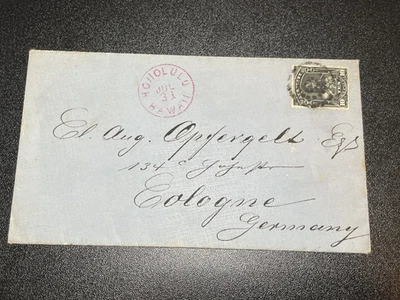 HONOLULU
JUL
31
HAWAII
El. Aug. Opfergelt Esqr
134
Cologne
Germany